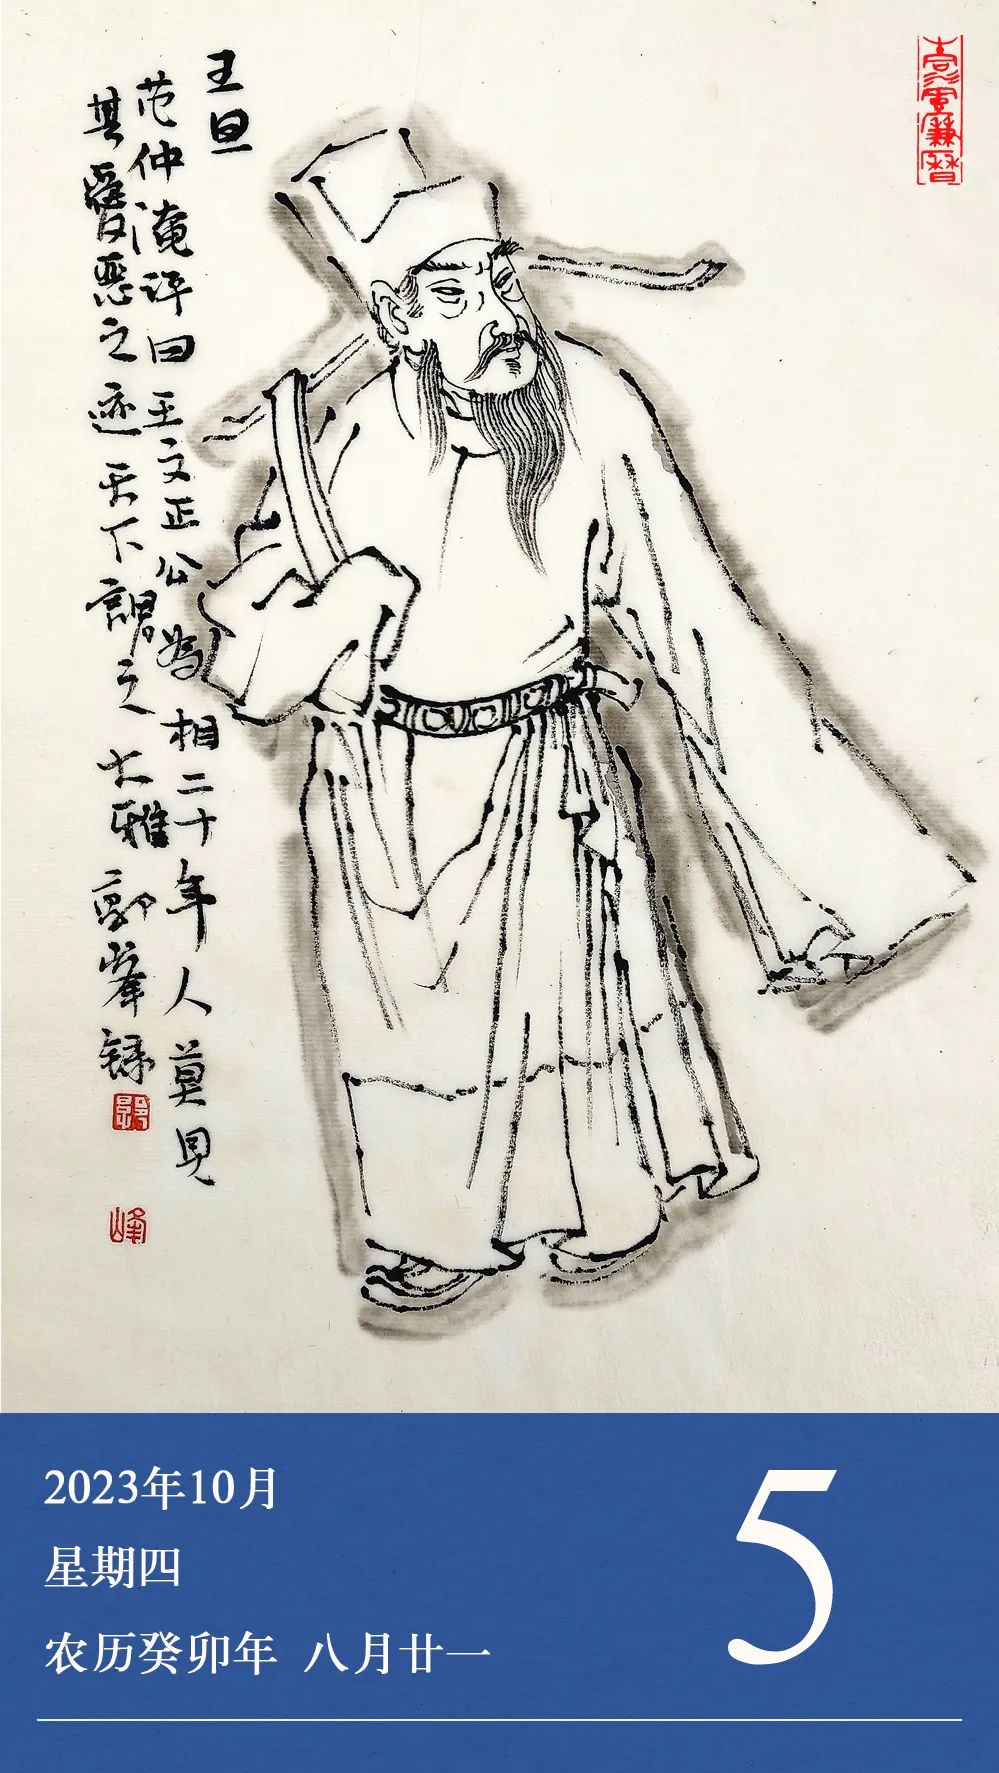 王旦
范仲淹评曰王文正公為相二十年人莫見
其愛恶之迹天下謂之大雅郭峯録
峰
2023年10月
星期四
农历癸卯年 八月廿一
5